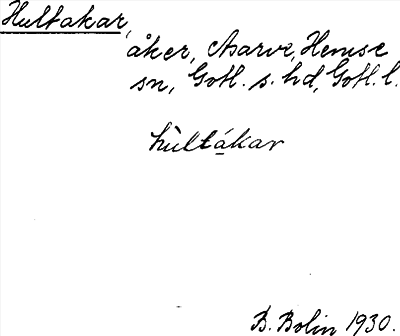 Hultakar,
åker, Asarve, Hemse
sn, Gotl. s. hd, Gotl. l.
hùltákar
B. Bolin 1930.